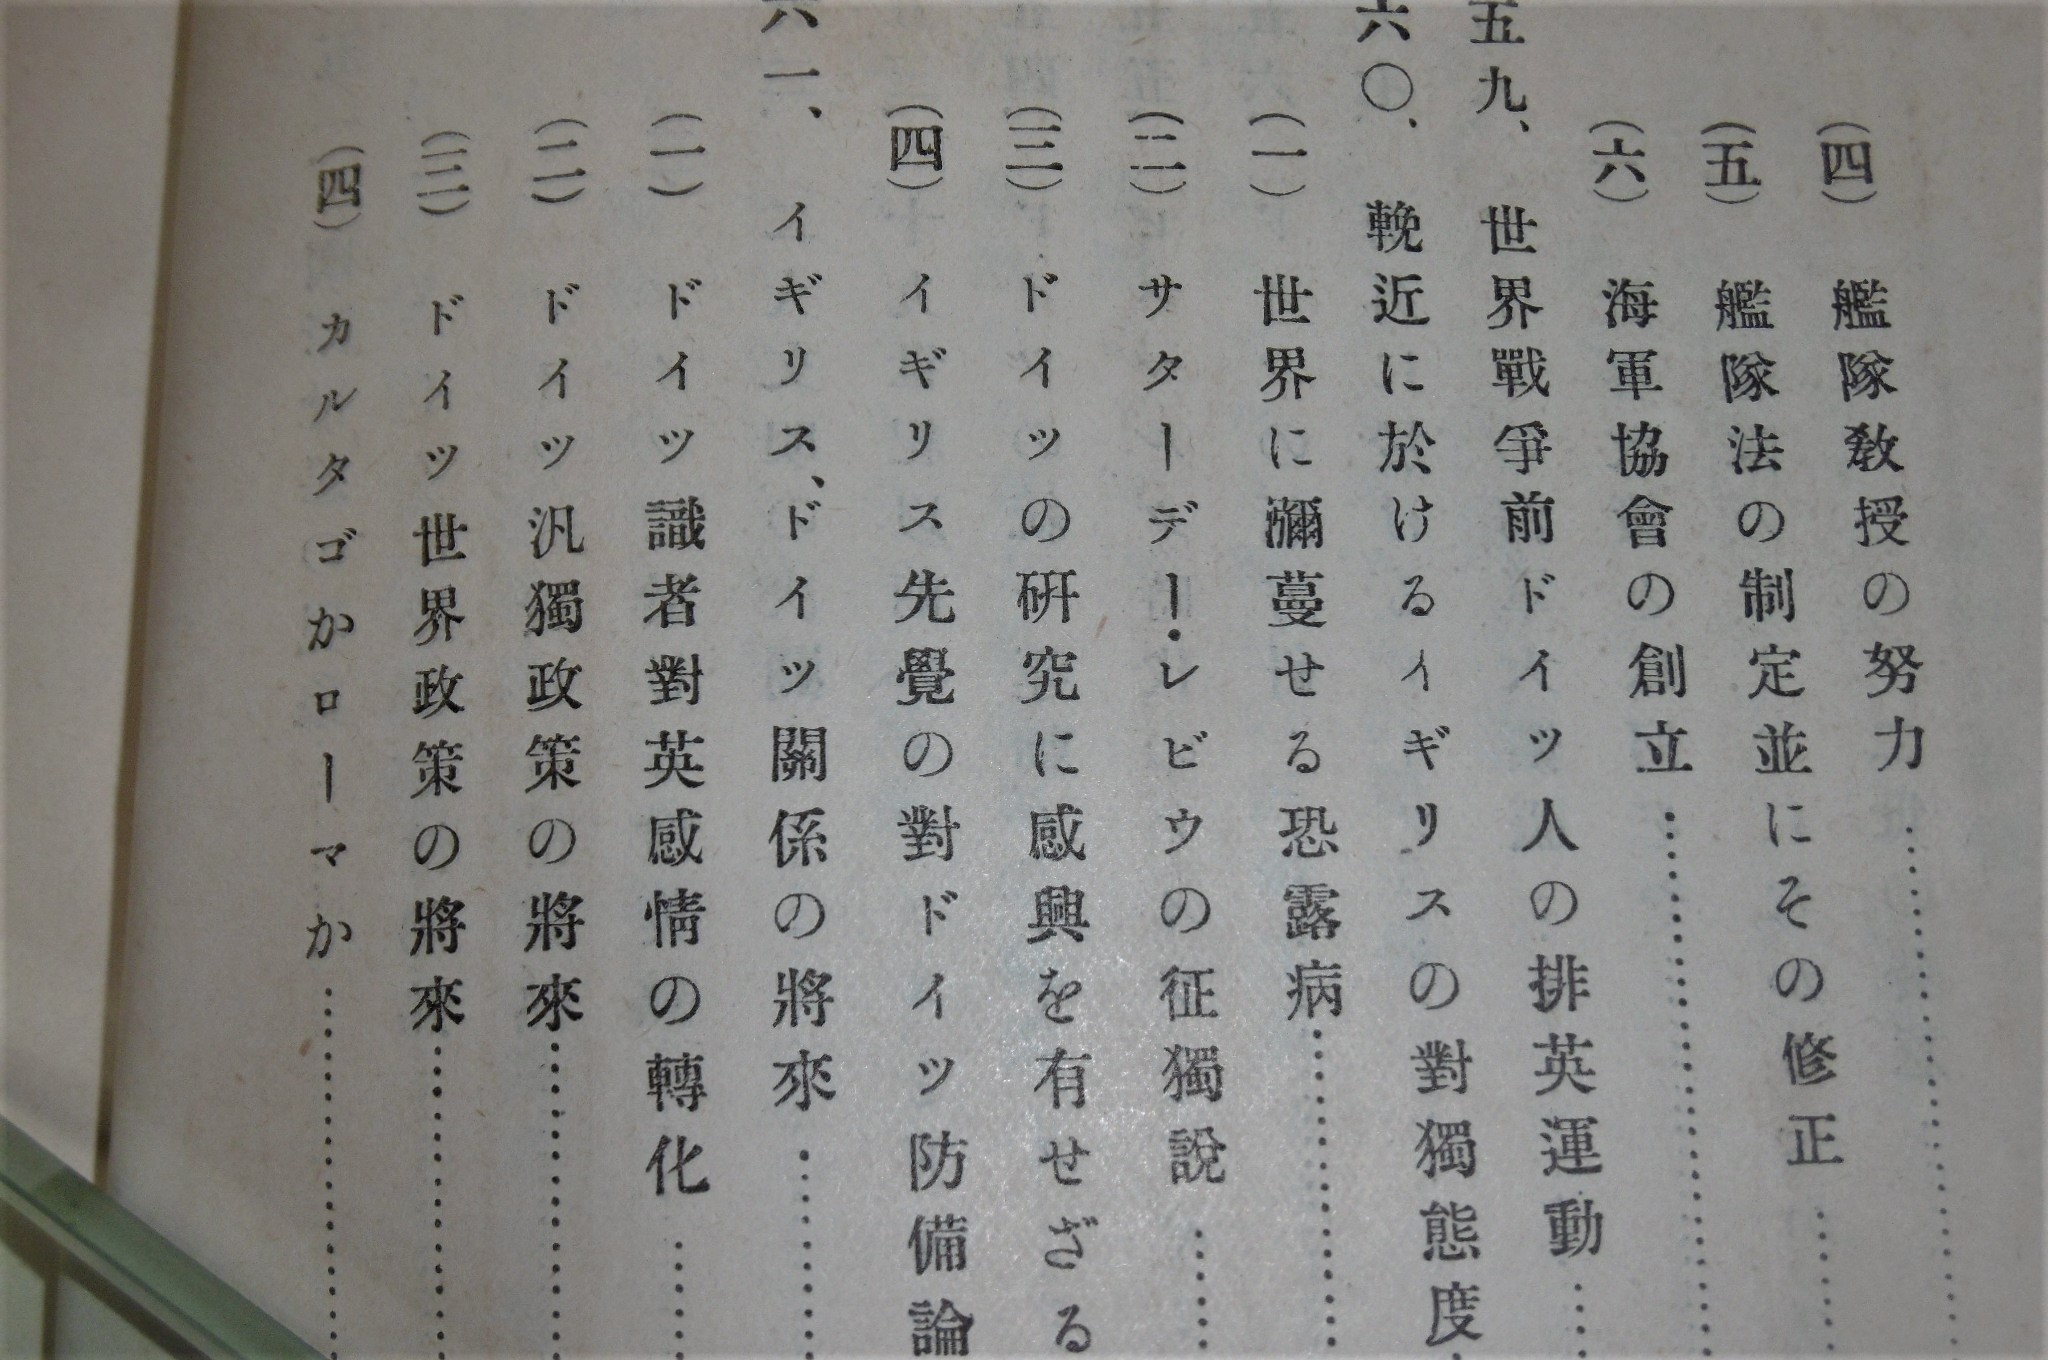 (四) 艦隊敎授の努力…………
(五) 艦隊法の制定並にその修正……
(六) 海軍協會の創立…………
五九、世界戰爭前ドイツ人の排英運動……
六〇、輓近に於けるイギリスの對獨態度
(一) 世界に瀰蔓せる恐露病…………
(二) サターデー・レビウの征獨說……
(三) ドイツの硏究に感興を有せざる
(四) イギリス先覺の對ドイツ防備論
六一、イギリス、ドイツ關係の將來……
(一) ドイツ識者對英感情の轉化……
(二) ドイツ汎獨政策の將來…………
(三) ドイツ世界政策の將來…………
(四) カルタゴかローマか…………